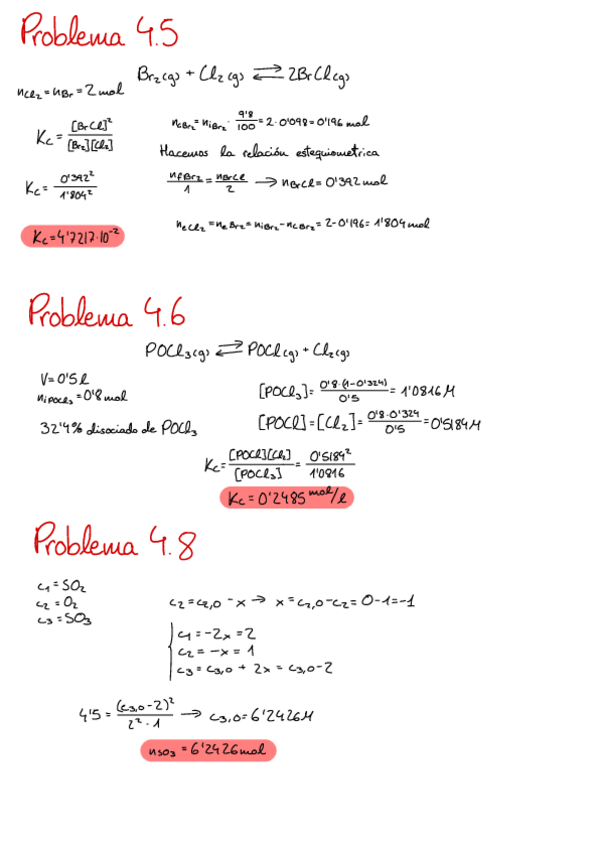 Problema 4.5
Br₂(g) + Cl₂(g) ⇄ 2BrCl(g)
nCl₂ = nBr = 2 mol
Kc = [BrCl]² / [Br₂][Cl₂]
nCBr₂ = niBr₂ · 9'8/100 = 2 · 0'098 = 0'196 mol
Hacemos la relación estequiometrica
Kc = 0'392² / 1'804²
nfBr₂/1 = nBrCl/2 → nBrCl = 0'392 mol
neCl₂ = neBr₂ = niBr₂ - ncBr₂ = 2 - 0'196 = 1'804 mol
Kc = 4'7217·10⁻²
Problema 4.6
POCl₃(g) ⇄ POCl(g) + Cl₂(g)
V = 0'5 l
niPOCl₃ = 0'8 mol
[POCl₃] = 0'8·(1-0'324) / 0'5 = 1'0816 M
32'4% disociado de POCl₃
[POCl] = [Cl₂] = 0'8·0'324 / 0'5 = 0'5184 M
Kc = [POCl][Cl₂] / [POCl₃] = 0'5184² / 1'0816
Kc = 0'2485 mol/l
Problema 4.8
c₁ = SO₂
c₂ = O₂
c₃ = SO₃
c₂ = c₂,₀ - x → x = c₂,₀ - c₂ = 0 - 1 = -1
c₁ = -2x = 2
c₂ = -x = 1
c₃ = c₃,₀ + 2x = c₃,₀ - 2
4'5 = (c₃,₀ - 2)² / 2²·1 → c₃,₀ = 6'2426 M
nSO₃ = 6'2426 mol